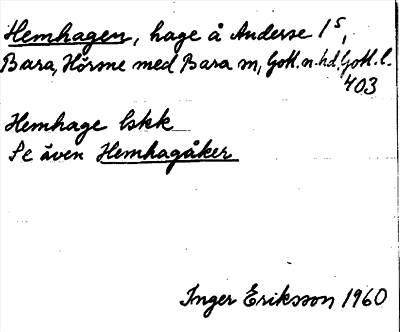 Hemhagen, hage å Anderse 1⁵,
Bara, Hörsne med Bara m, Gotl. n. hd. Gotl. l.
403
Hemhage lskk
Se även Hemhagåker
Inger Eriksson 1960